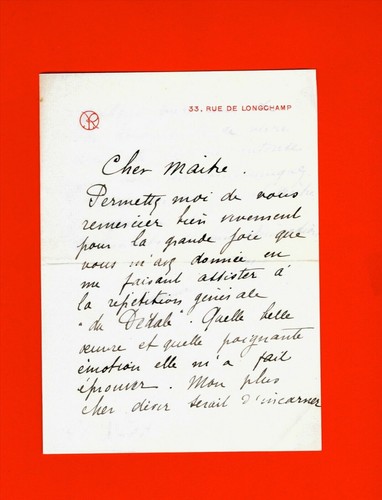 33, RUE DE LONGCHAMP
Cher Maitre.
Permettez moi de vous
remercier bien vivement
pour la grande joie que
vous m'avez donnée en
me faisant assister à
la répétition générale
"du Dédale". Quelle belle
œuvre et quelle poignante
émotion elle m'a fait
éprouver. Mon plus
cher désir serait d'incarner